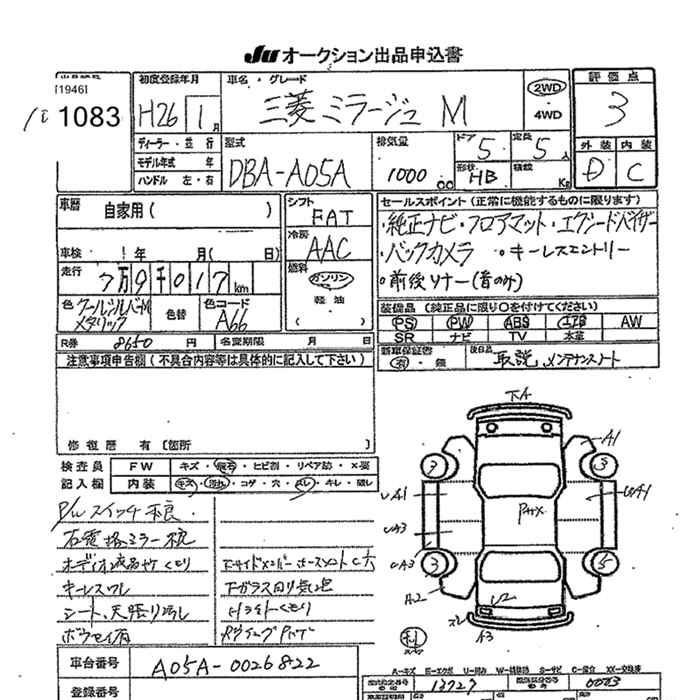 JU オークション出品申込書
[1946]
1083
初度登録年月
H26 1月
車名・グレード
三菱 ミラージュ M
2WD
・
4WD
評価点
3
外装 内装
D C
ディーラー・並行
モデル年式 年
ハンドル 左・右
型式
DBA-A05A
排気量
1000 cc
ドア
5
定員
5人
形状
HB
積載
Kg
車歴
自家用( )
車検 年 月( 日)
走行
7万9千017km
色 クールシルバーM
メタリック
色替
色コード
A66
シフト
FAT
冷房
AAC
燃料
ガソリン
軽油
( )
セールスポイント(正常に機能するものに限ります)
・純正ナビ・フロアマット・エグゼードバイザー
・バックカメラ ・キーレスエントリー
・前後ソナー(音のみ)
装備品(純正品に限り○を付けてください)
PS PW ABS エアB AW
SR ナビ TV 本革
R券 8650 円 名変期限 月 日
新車保証書
有・無
後日品
取説 メンテナンスノート
注意事項申告欄(不具合内容等は具体的に記入して下さい)
修復歴 有〔箇所 〕
検査員 FW キズ・飛石・ヒビ割・リペア跡・×要
記入欄 内装 キズ・汚れ・コゲ・穴・スレ・キレ・破レ
P/W スイッチ不良
右電格ミラー不良
オーディオ液晶ヤケ くもり
キーレスワレ
シート、天張り汚し
下ガラス回り気泡
車台番号 A05A-0026822
登録番号
下A
A1
3
3
UA1
UA1
UA3
UA3
3
5
A2
U2
A3
A-キズ E-エクボ U-凹み W-補修跡 S-サビ C-腐食 XX-交換済
13727 0003